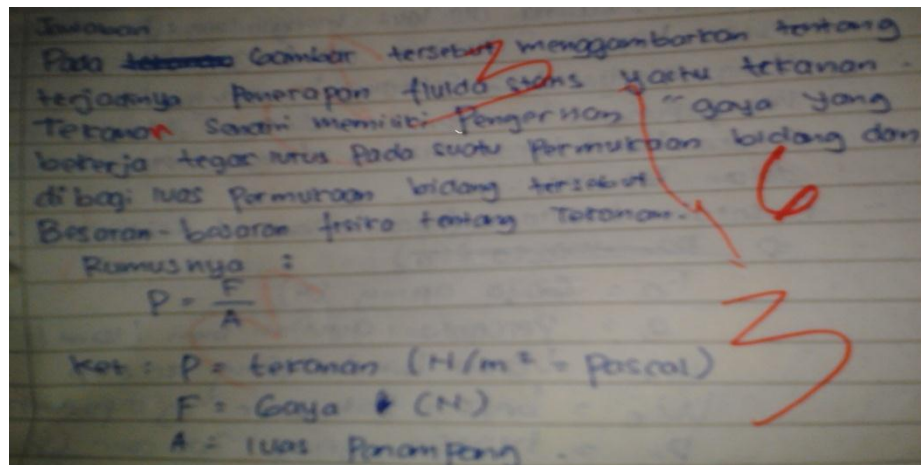 Jawaban
Pada Gambar tersebut menggambarkan tentang
terjadinya Penerapan fluida statis yaitu tekanan.
Tekanan Sendiri memiliki Pengertian "gaya yang
bekerja tegak lurus Pada suatu Permukaan bidang dan
di bagi luas Permukaan bidang tersebut.
Besaran-besaran fisika tentang Tekanan.
Rumusnya :
P = F/A
Ket : P = tekanan (N/m² = Pascal)
F = Gaya (N)
A = luas Penampang.
3
6
3